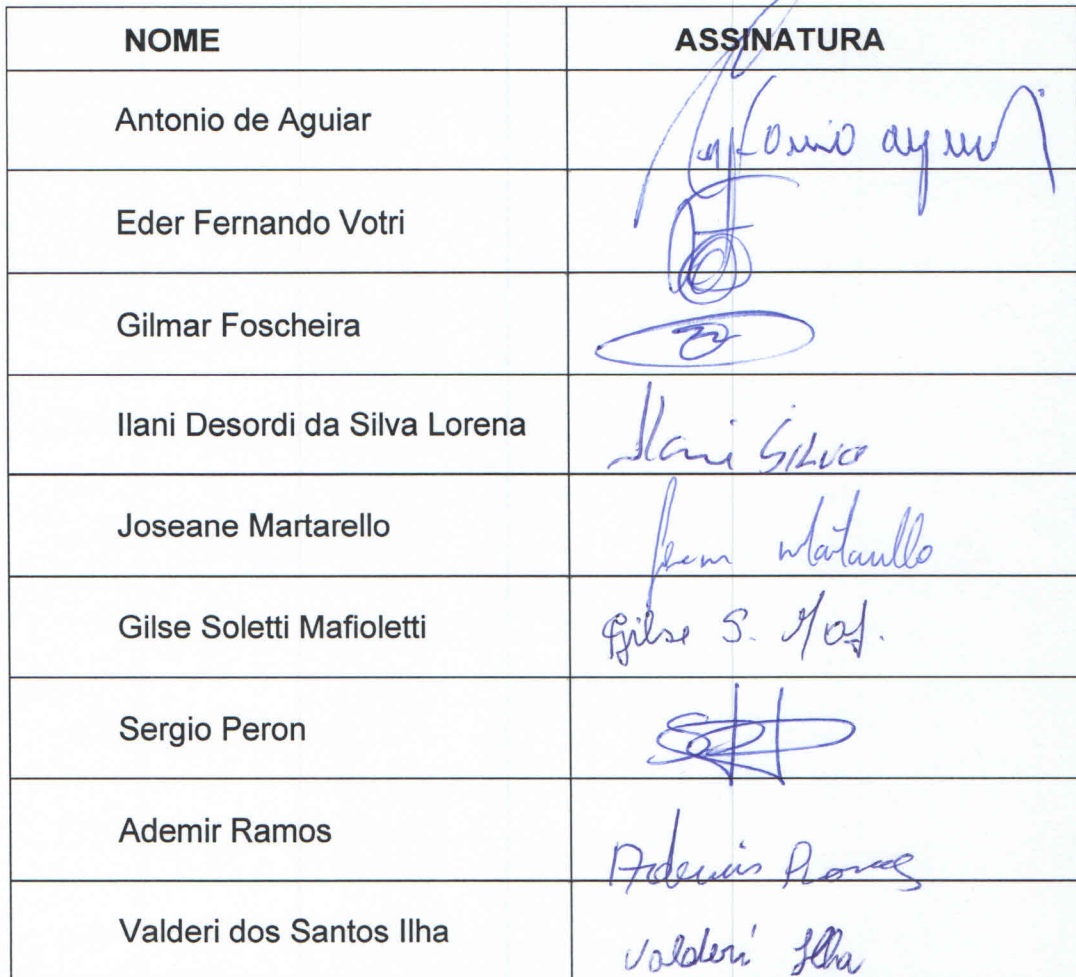 NOME ASSINATURA
Antonio de Aguiar
Eder Fernando Votri
Gilmar Foscheira
Ilani Desordi da Silva Lorena Ilani Silva
Joseane Martarello
Gilse Soletti Mafioletti Gilse S. Maf.
Sergio Peron
Ademir Ramos Ademir Ramos
Valderi dos Santos Ilha Valderi Ilha